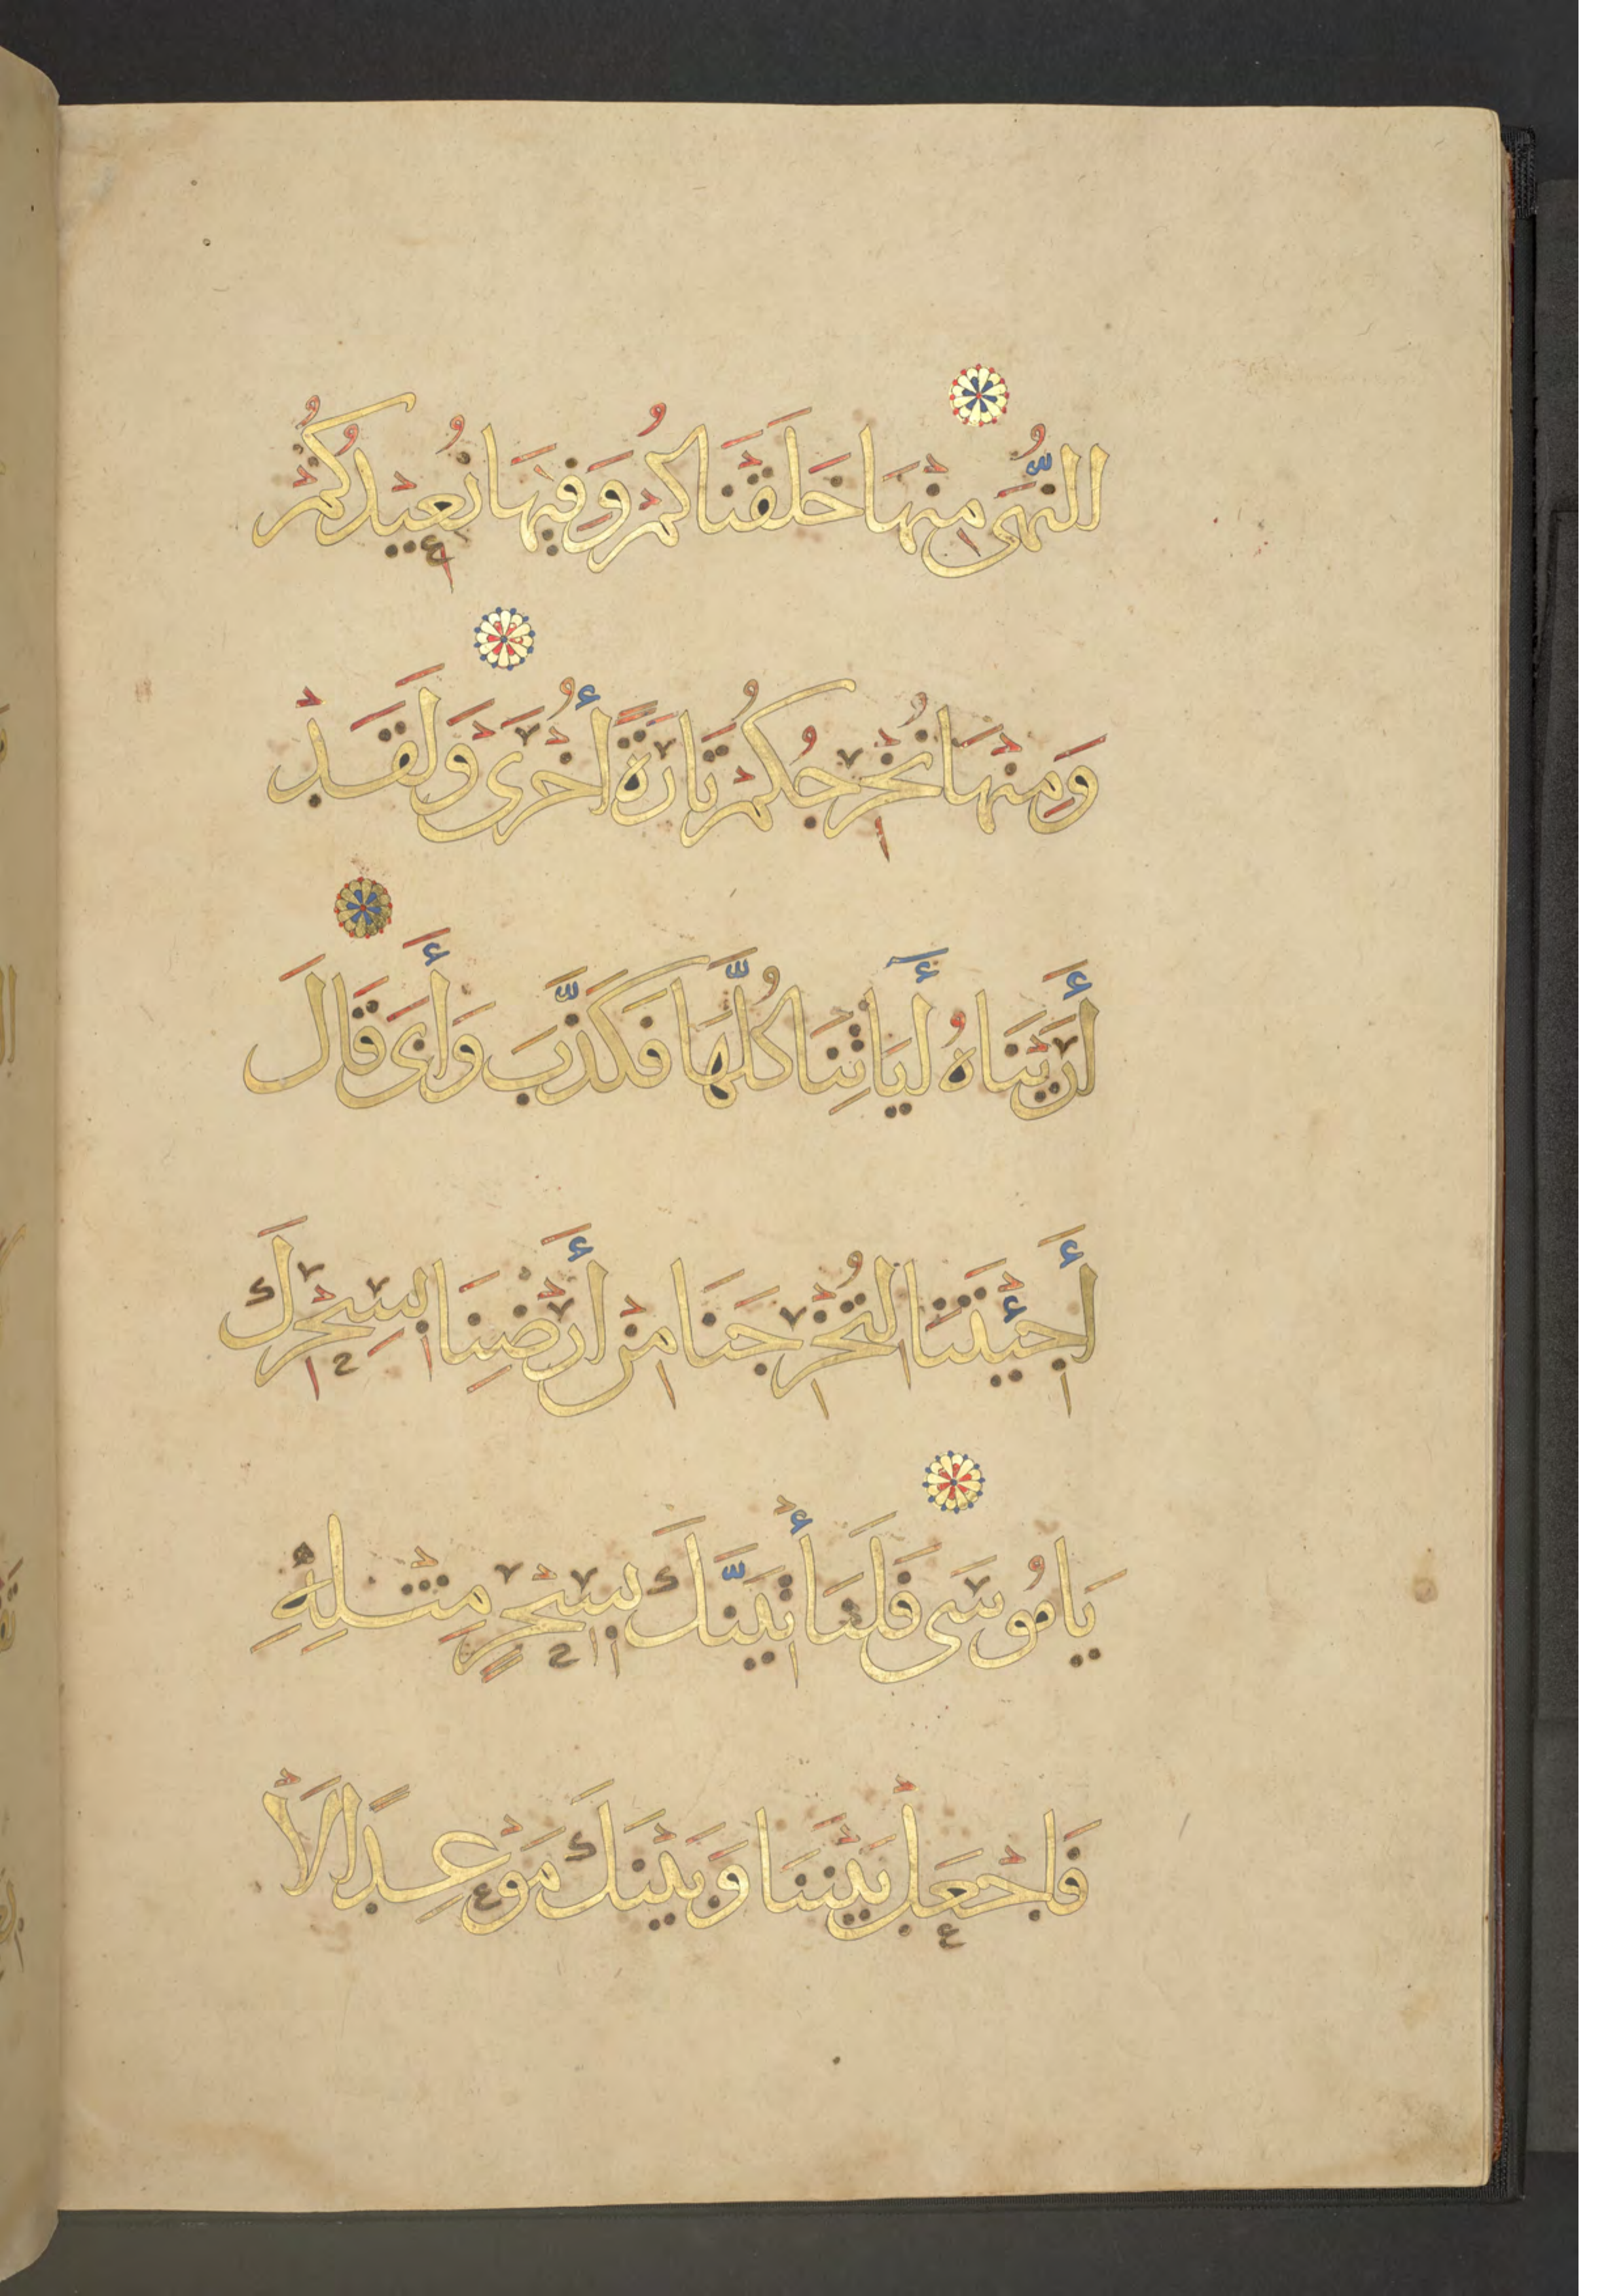 النُّهَى مِنْهَا خَلَقْنَاكُمْ وَفِيهَا نُعِيْدُكُمْ
وَمِنْهَا نُخْرِجُكُمْ تَارَةً أُخْرَىٰ وَلَقَدْ
أَرَيْنَاهُ أَيَاتِنَا كُلَّهَا فَكَذَّبَ وَأَبَى قَالَ
أَجِئْتَنَا لِتُخْرِجَنَا مِنْ أَرْضِنَا بِسِحْرِكَ
يَا مُوسَى فَلَنَأْتِيَنَّكَ بِسِحْرٍ مِثْلِهِ
فَاجْعَلْ بَيْنَنَا وَبَيْنَكَ مَوْعِدًا لَا